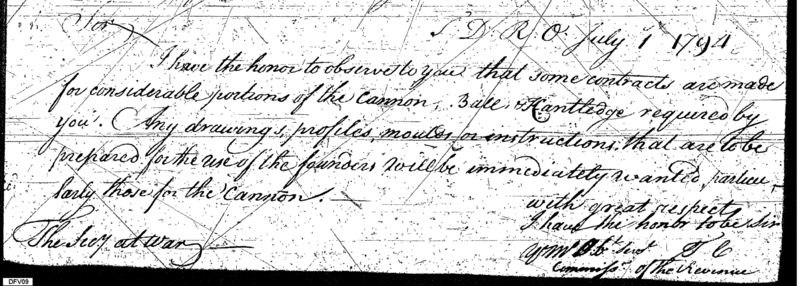 T. D. R. O. July 1 1794
Sir
I have the honor to observe to you that some contracts are made
for considerable portions of the Cannon, Ball & Kantledge required by
you. Any drawings, profiles, moulds or instructions, that are to be
prepared for the use of the founders will be immediately wanted, particu,
larly those for the Cannon.
with great respect
I have the honor to be Sir
Yr Mo Obt Servt T C
Commissr of the Revenue
The Secy at War
DFV09